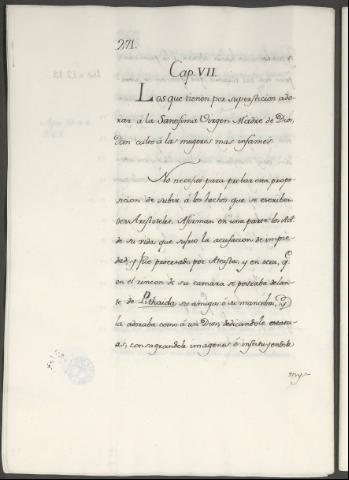 271.
Cap. VII.
Los que tienen por supersticion ado-
rar á la Santisima Virgen Madre de Dios,
dan culto á las mugeres mas infames.
No necesito para probar esta propo-
sicion de subir á los hechos que se escriben
de Aristoteles. Afirman en una parte los
de su vida que sufrio la acusacion de impie-
dad, y fue procesado por Ateista, y en otra, q.e
en el rincon de su camara se postraba delan-
te de su amiga ó su manceba, y
la adoraba como á un Dios, dedicandole estatu-
as, consagrandole imagenes é instituyendole